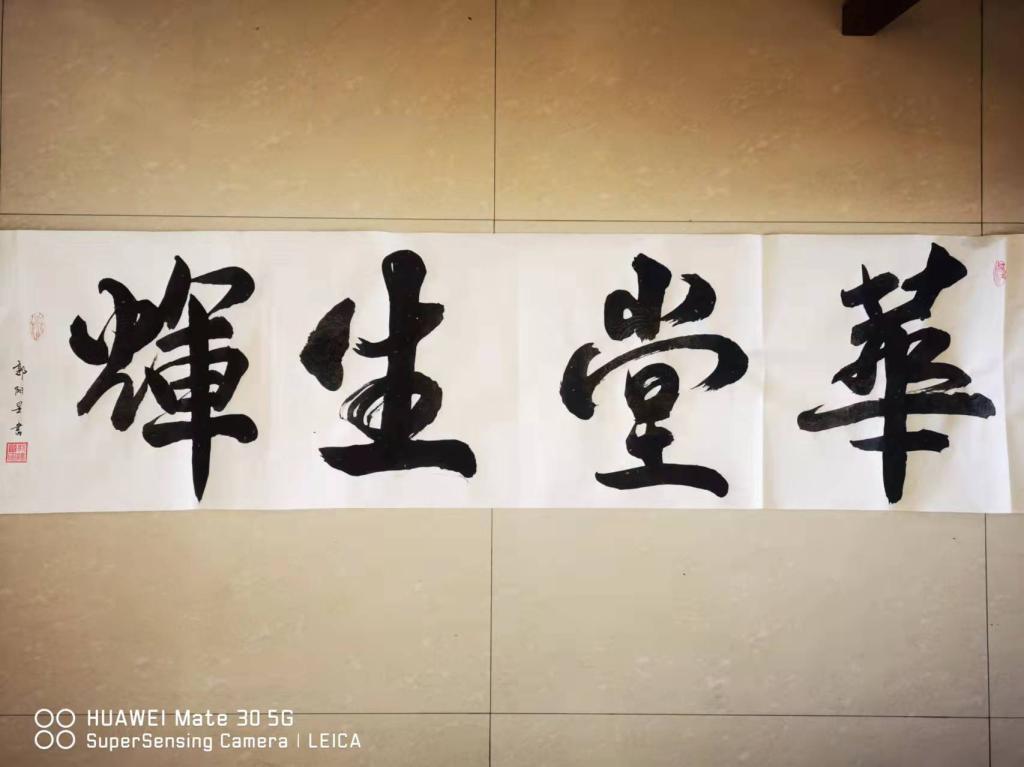 華堂生輝
HUAWEI Mate 30 5G
SuperSensing Camera | LEICA